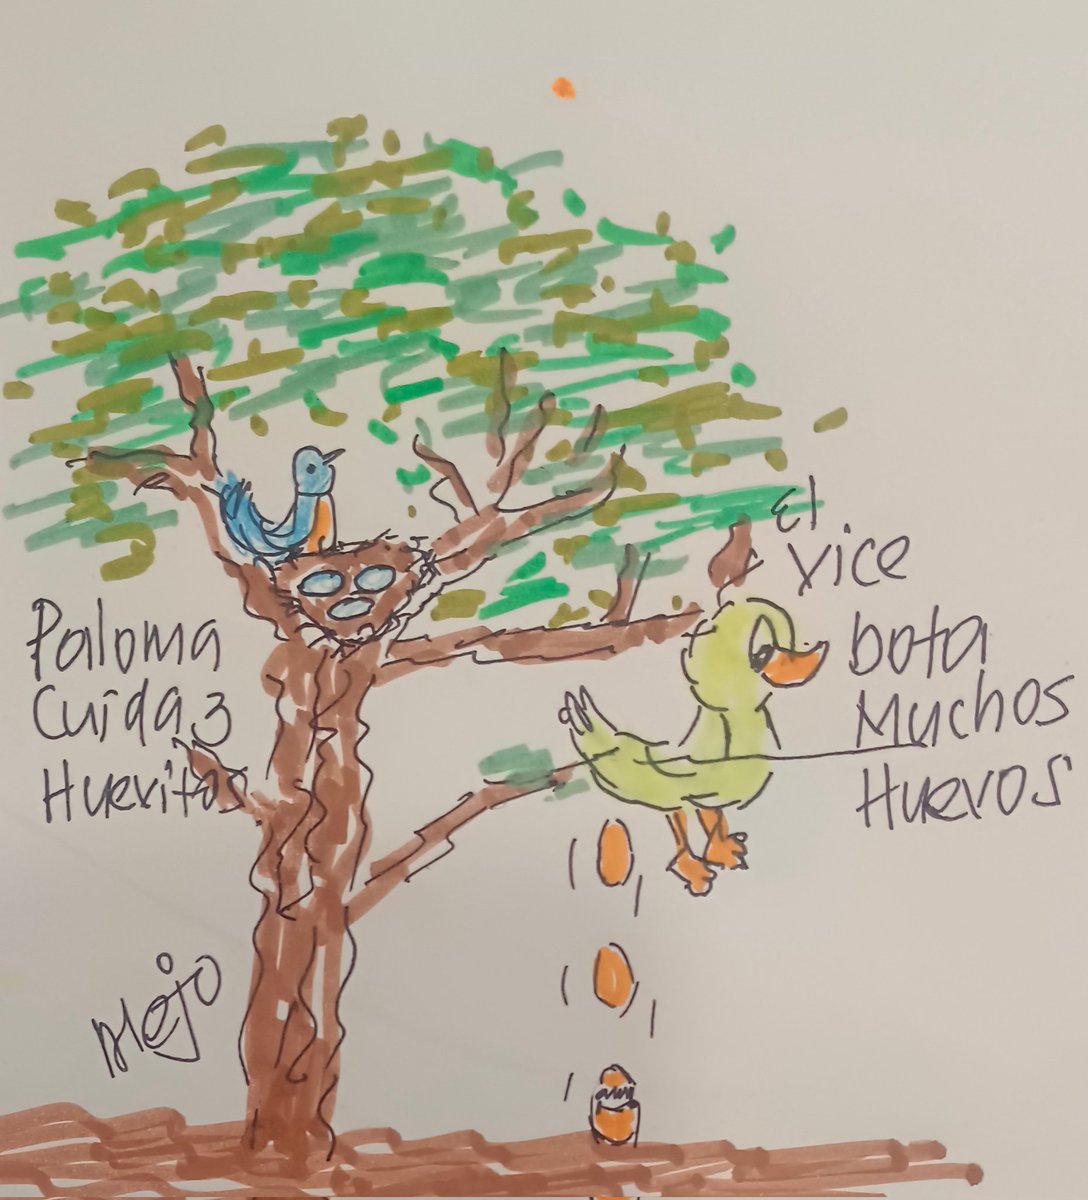 El
Vice
bota
Muchos
Huevos
Paloma
Cuida 3
Huevitos
Alejo